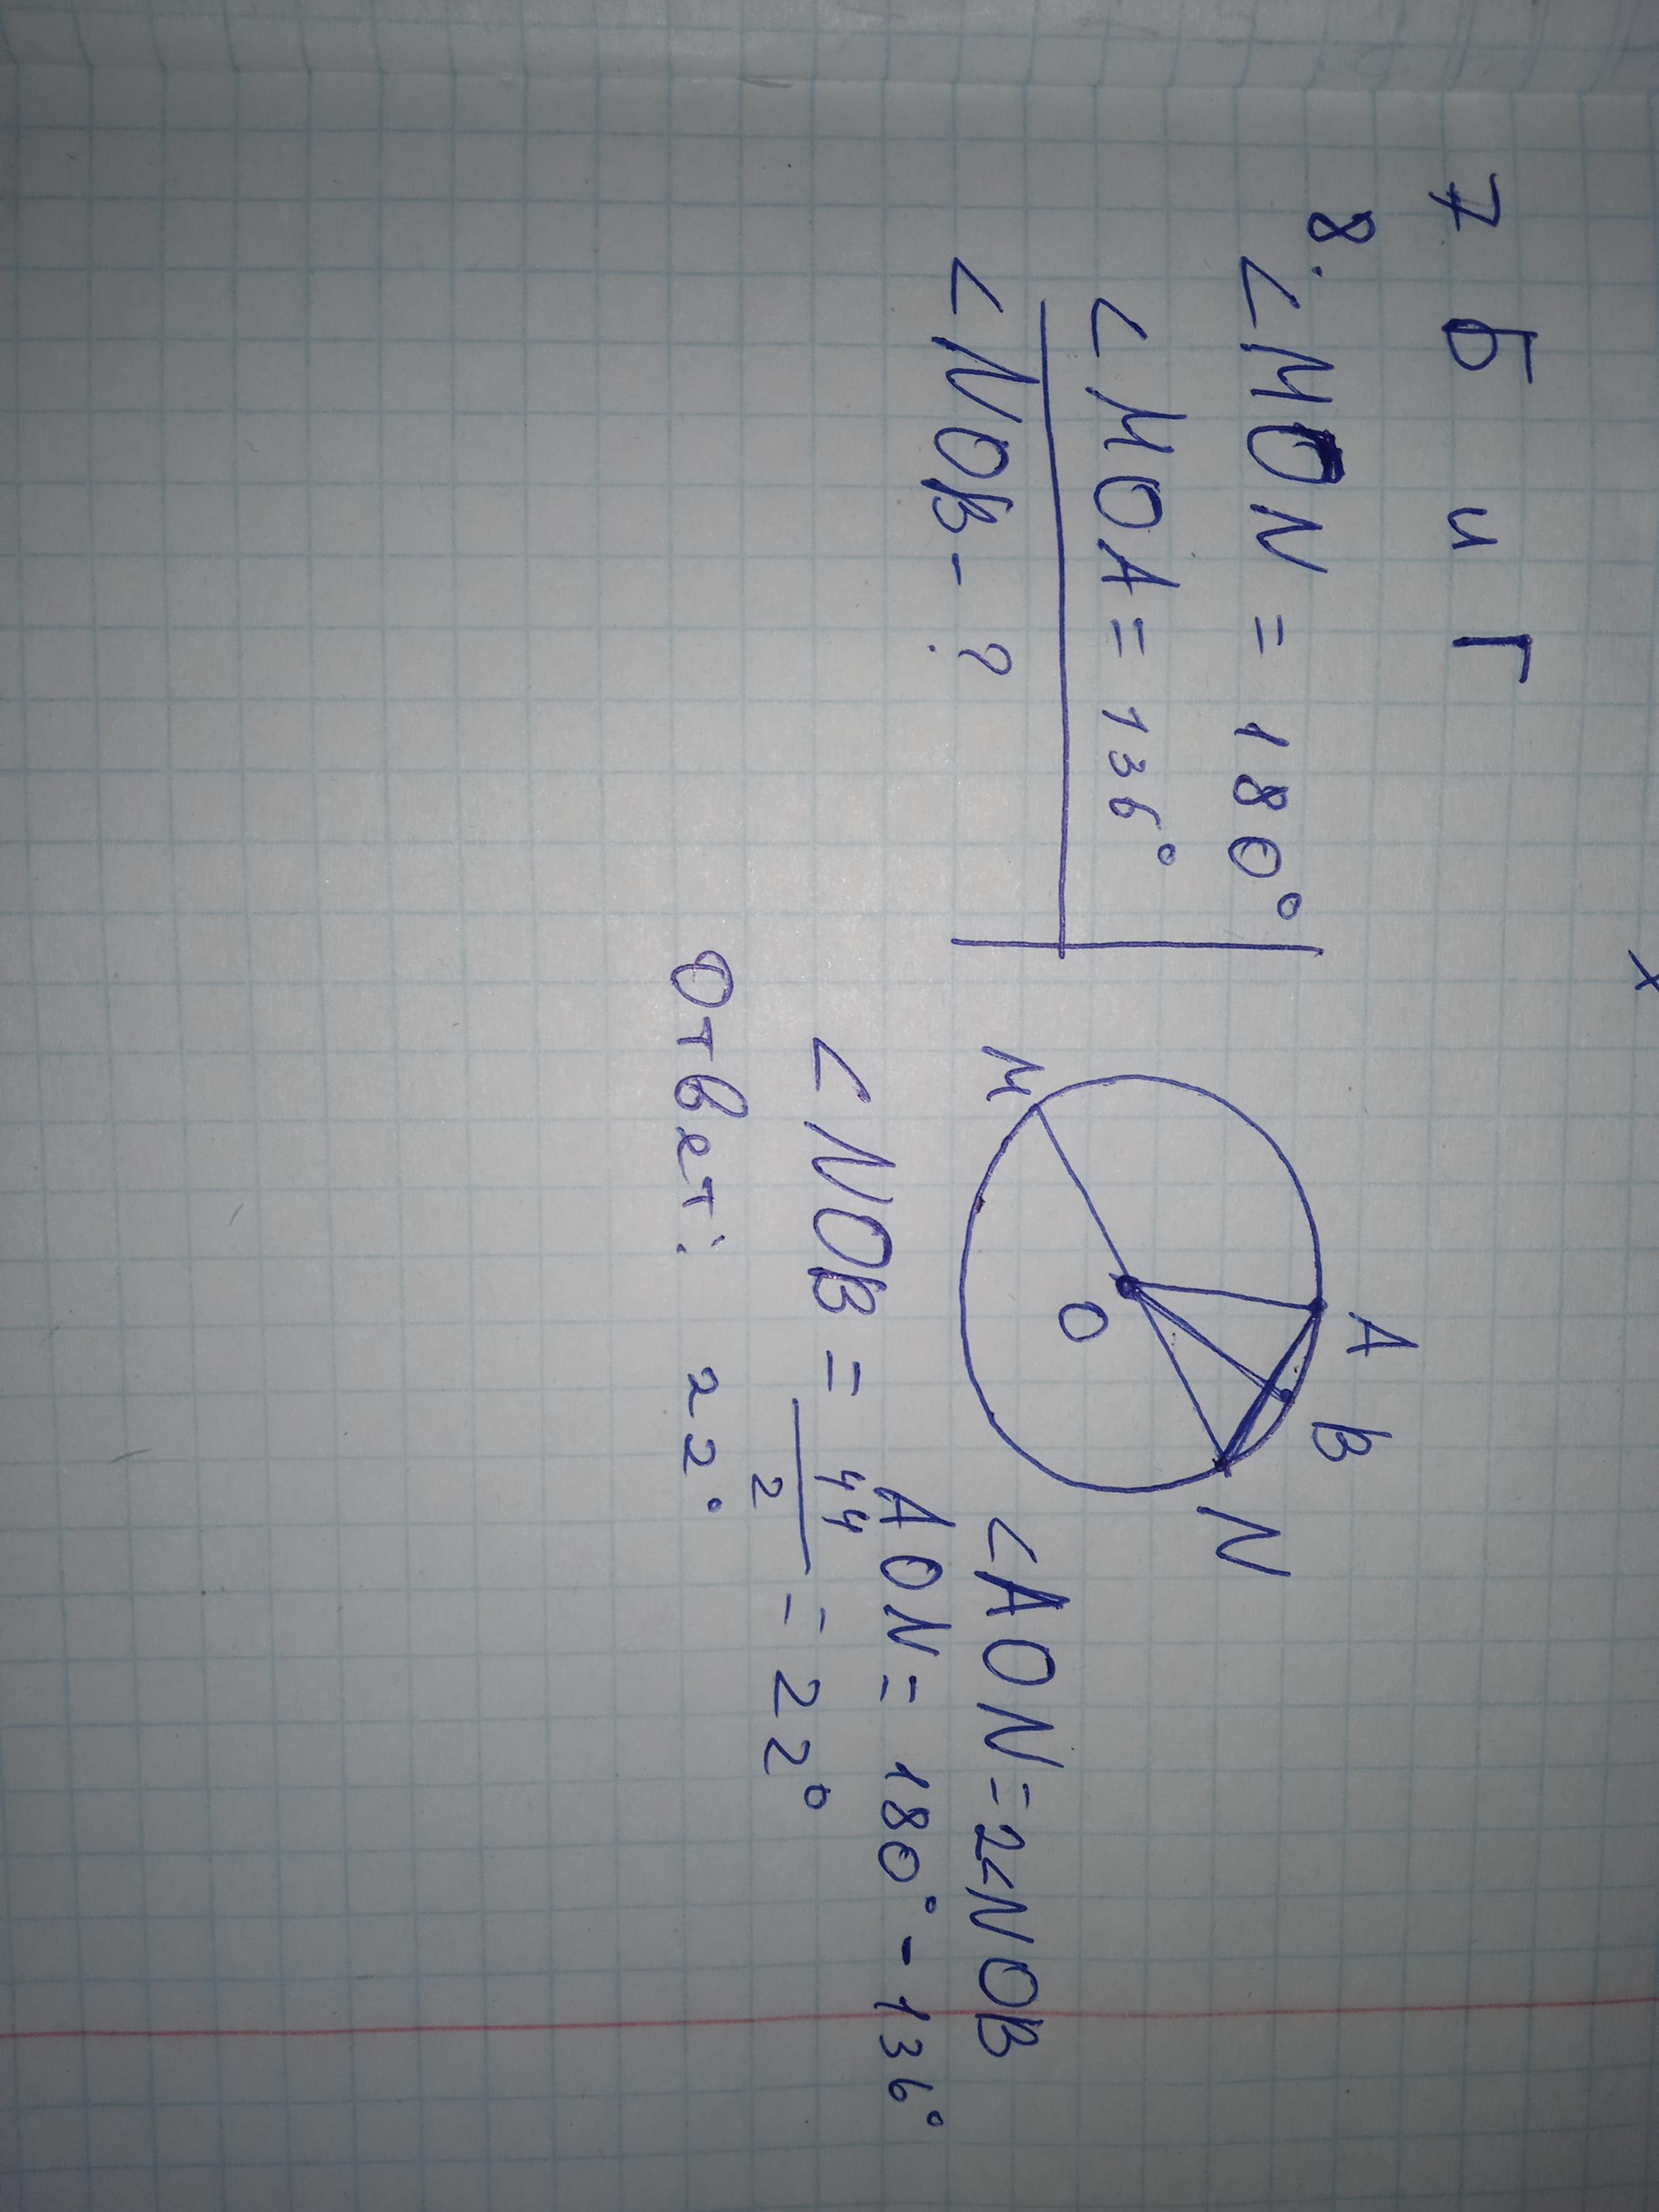 х
7 Б и Г
8.
<MON = 180°
<MOA = 136°
<NOB - ?
A
B
M
O
N
<AON = 2<NOB
AON = 180° - 136°
<NOB = 44/2 = 22°
Ответ: 22°